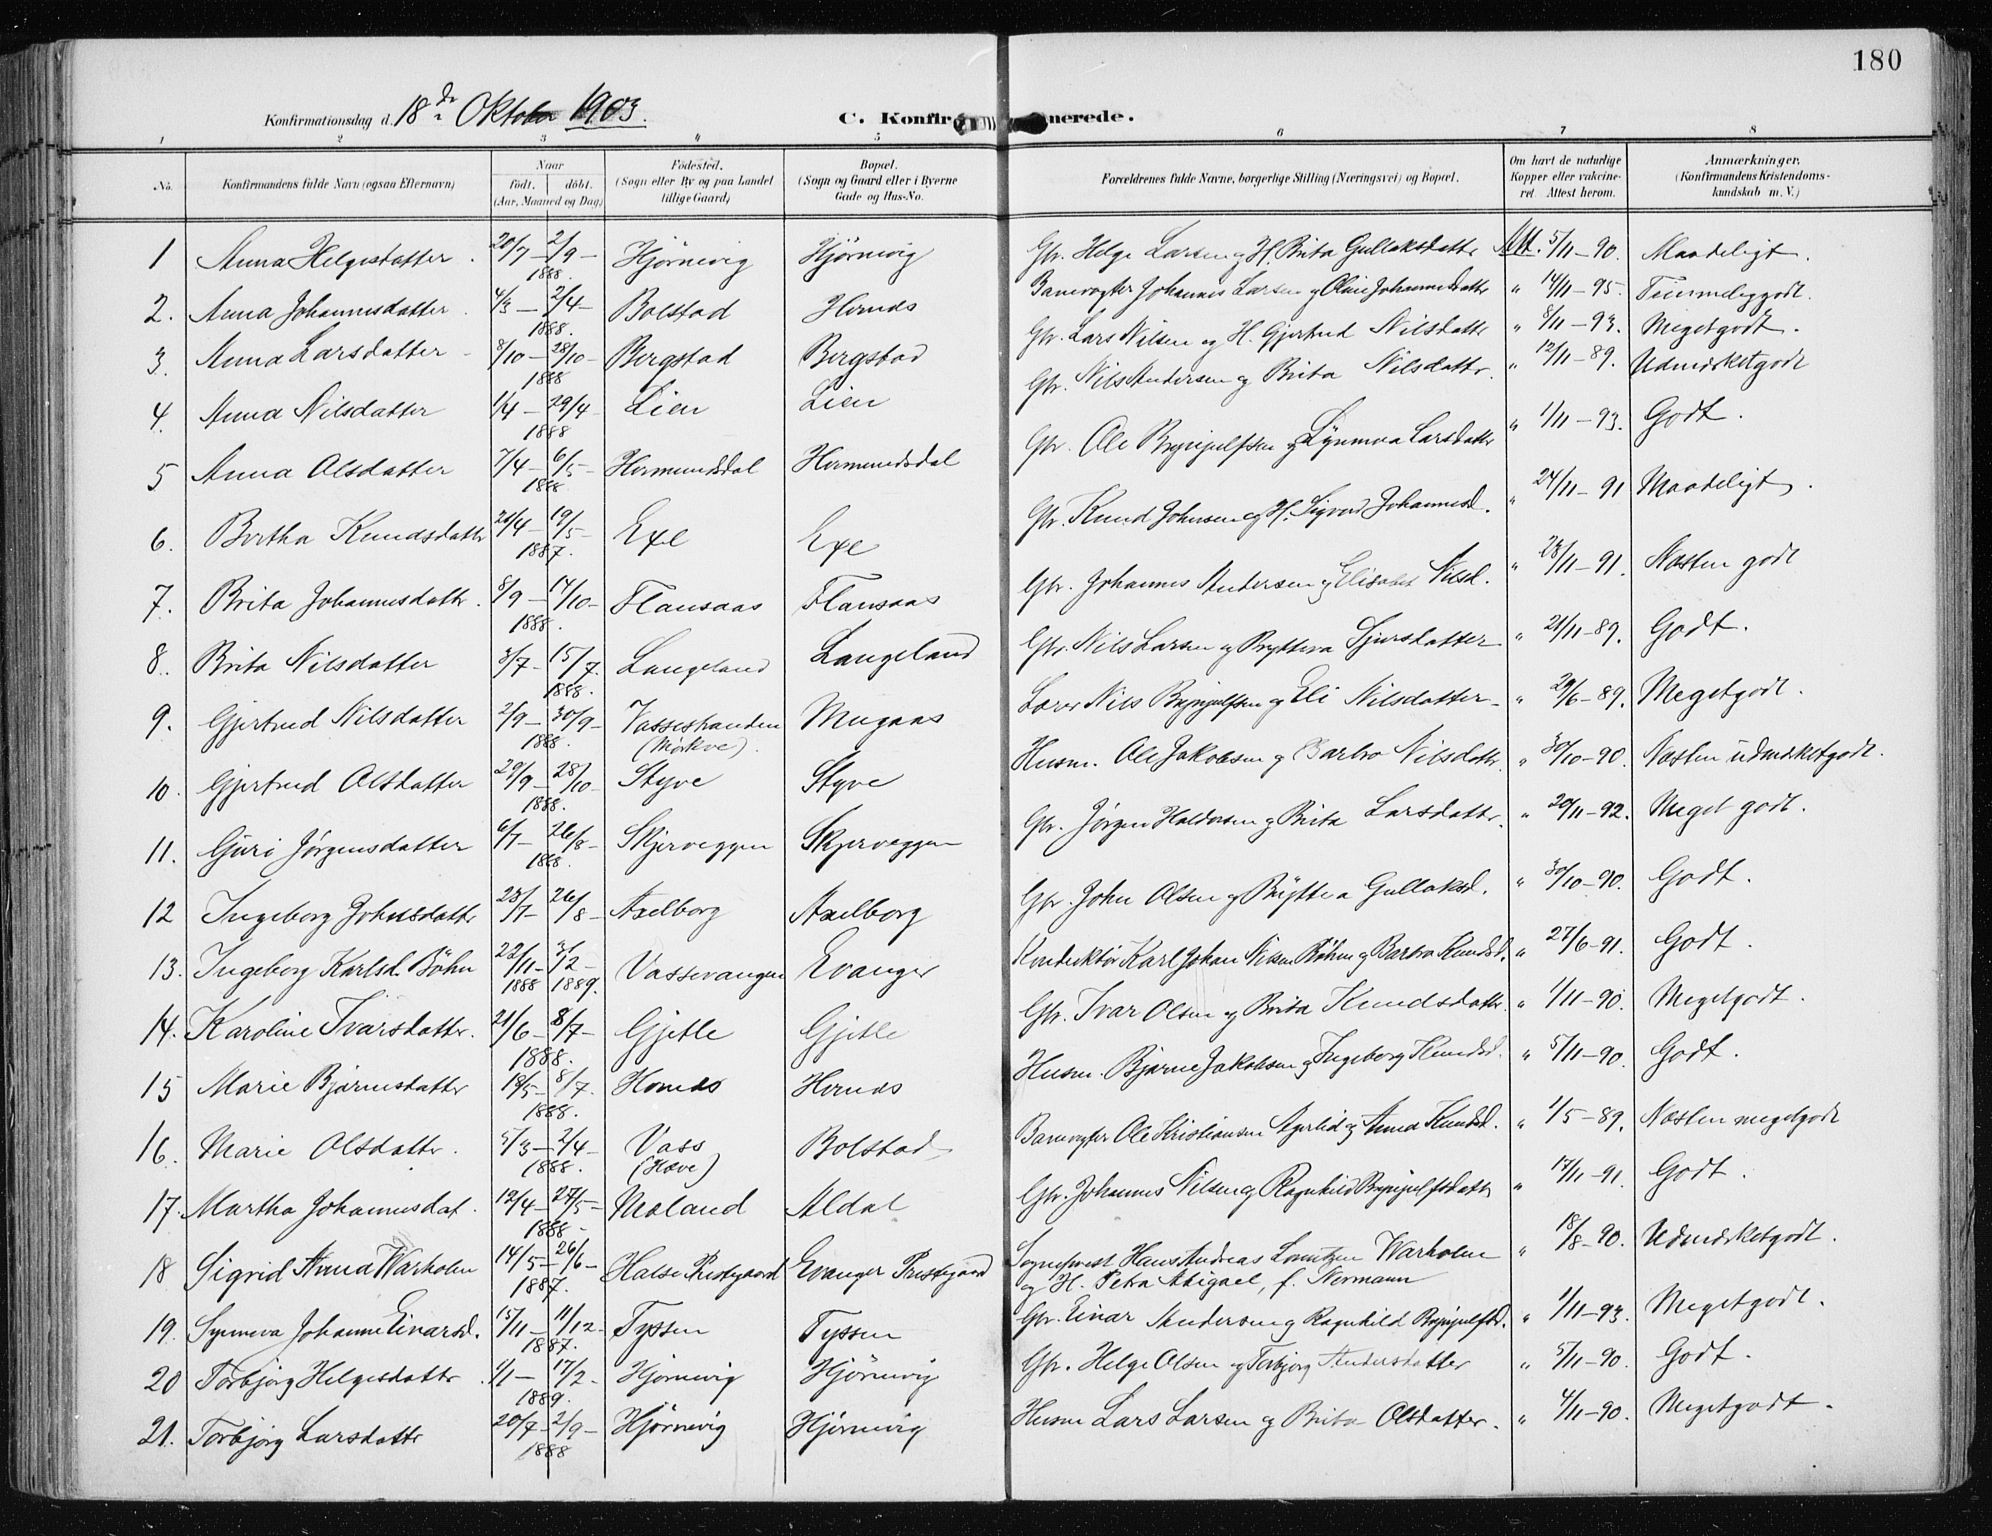 180
Konfirmationsdag d. 18de Oktober 1903.
C. Konfirmerede.
1 2 3 4 5 6 7 8
No. Konfirmandens fulde Navn (ogsaa Efternavn) Naar født. døbt. (Aar, Maaned og Dag) Fødested. (Sogn eller By og paa Landet tillige Gaard) Bopæl. (Sogn og Gaard eller i Byerne Gade og Hus-No. Forældrenes fulde Navne, borgerlige Stilling (Næringsvei) og Bopæl. Om havt de naturlige Kopper eller vakcineret. Attest herom. Anmærkninger. (Konfirmandens Kristendomskundskab m. V.)
1 Anna Helgesdatter. 20/7 – 2/9 – 1888. Hjørnevig Hjørnevig Gbr. Helge Larsen og H. Brita Gullaksdatter Att. 5/11 – 90. Maadeligt.
2. Anna Johannesdatter. 4/3 – 2/4 – 1888. Bolstad Hernæs Banevogter Johannes Larsen og Oline Johannesdatter " 14/11 – 95. Temmeliggodt.
3. Anna Larsdatter 8/10 – 28/10 – 1888 Bergstad Bergstad Gbr. Lars Nilsen og H. Gjertrud Nilsdatter " 8/11 – 93. Megetgodt.
4. Anna Nilsdatter 1/4 – 29/4 – 1888 Lien Lien Gbr. Nils Andersen og Brita Nilsdattr. " 12/11 – 89. Udmærketgodt
5 Anna Olsdatter 7/4 – 6/5 – 1888 Hermundsdal Hermundsdal Gbr. Ole Brynjulfsen og Synneva Larsdatter " 1/11 – 93. Godt.
6. Bertha Knudsdatter 21/4 – 19/5 – 1887. Exe Exe Gbr. Knud Johnsen og H. Sigvor Johannesd. " 24/11 – 91 Maadeligt.
7. Brita Johannesdattr. 8/9 – 14/10 – 1888. Flansaas Flansaas Gbr. Johannes Andersen og Elisabet Nilsd. " 23/11 – 91. Næsten godt
8. Brita Nilsdatter 3/7 – 15/7. 1888. Langeland Langeland Gbr. Nils Larsen og Brytteva Sjursdatter " 21/11 – 89. Godt.
9. Gjertrud Nilsdatter 2/9 – 30/9 – 1888. Vassestranden (Mørkve). Mugaas Lærer Nils Brynjulfsen og Eli Nilsdatter – " 29/6 – 89. Megetgodt.
10. Gjertrud Olsdatter 29/9 – 28/10 – 1888. Styve Styve Husm. Ole Jakobsen og Barbro Nilsdattr. " 30/10 – 90. Næsten udmærketgodt.
11. Guri Jørgensdatter 6/7 – 26/8 – 1888. Skjerveggen Skjerveggen Gbr. Jørgen Haldorsen og Brita Larsdattr. " 20/11 – 92. Meget godt.
12 Ingeborg Johnsdatter 23/7 – 26/8 – Axelborg Axelborg Gbr. John Olsen og Brytteva Gullaksd. " 30/10 – 90. Godt.
13. Ingeborg Karlsd. Bøhn 22/11 – 3/2 – 1888 1889. Vassevangen Evanger Konduktør Karl Johan Nilsen Bøhn og Barbra Knudsd. " 27/6 – 91. Godt.
14. Karoline Ivarsdatter. 21/6 – 8/7 – 1888. Gjetle Gjetle Gbr. Ivar Olsen og Brita Knudsdattr. " 1/11 – 90. Megetgodt.
15 Marie Bjørnesdatter 13/5 – 8/7. 1888. Hernæs Hernæs Husm. Bjørne Jakobsen og Ingeborg Knudsd. " 5/11 – 90. Godt.
16. Marie Olsdattr. 5/3 – 2/4 – 1888. Vass (Hæve) Bolstad Banevogter Ole Kristiansen Agerlid og Anna Knudsd. " 1/5 – 89. Næsten megetgodt
17. Martha Johannesdat. 12/4 – 27/5 – 1888 – Mæland Aldal Gbr. Johannes Nilsen og Ragnhild Brynjulfsdattr " 17/11 – 91. Godt.
18 Sigrid Anna Warholm 14/5 – 26/6 – 1887. Halse Prestegaard Evanger Prestegaard Sogneprest Hans Andreas Lorntzen Warholm og H. Petra Abigael, f. Normann " 18/8 – 90. Udmærketgodt.
19. Synneva Johanne Einarsd. 15/11 – 11/12 – 1887. Tyssen Tyssen Gbr. Einar Andersen og Ragnhild Brynjulfsd. " 1/11 – 93. Megetgodt.
20 Torbjørg Helgesdattr. 1/1 – 17/2 – 1889. Hjørnevig Hjørnevig Gbr. Helge Olsen og Torbjørg Andersdatter " 5/11 – 90. Godt.
21. Torbjørg Larsdattr 20/7 – 2/9 – 1888 Hjørnevig Hjørnevig Husm Lars Larsen og Brita Olsdatter. " 4/11 – 90. Megetgodt.